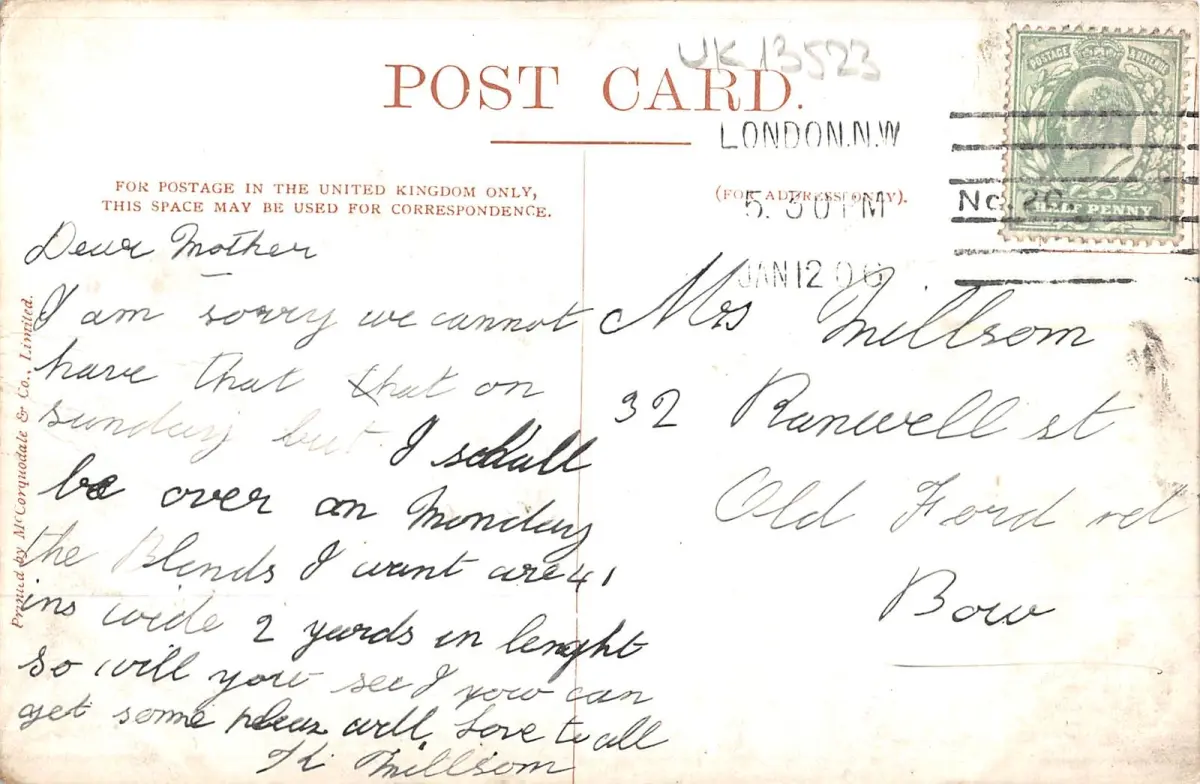 UK 13523
POST CARD.
LONDON.N.W
5.30PM
JAN 12 06
POSTAGE REVENUE
HALF PENNY
No. 20
FOR POSTAGE IN THE UNITED KINGDOM ONLY,
THIS SPACE MAY BE USED FOR CORRESPONDENCE.
(FOR ADDRESS ONLY).
Printed by McCorquodale & Co., Limited.
Dear Mother
I am sorry we cannot
have that that on
sunday but I schall
be over on Monday
the Blends I want are 41
ins wide 2 yards in lenght
so will you see I you can
get some pleas will, Love to all
H Millsom
Mrs Millsom
32 Ranwell st
Old Ford rd
Bow